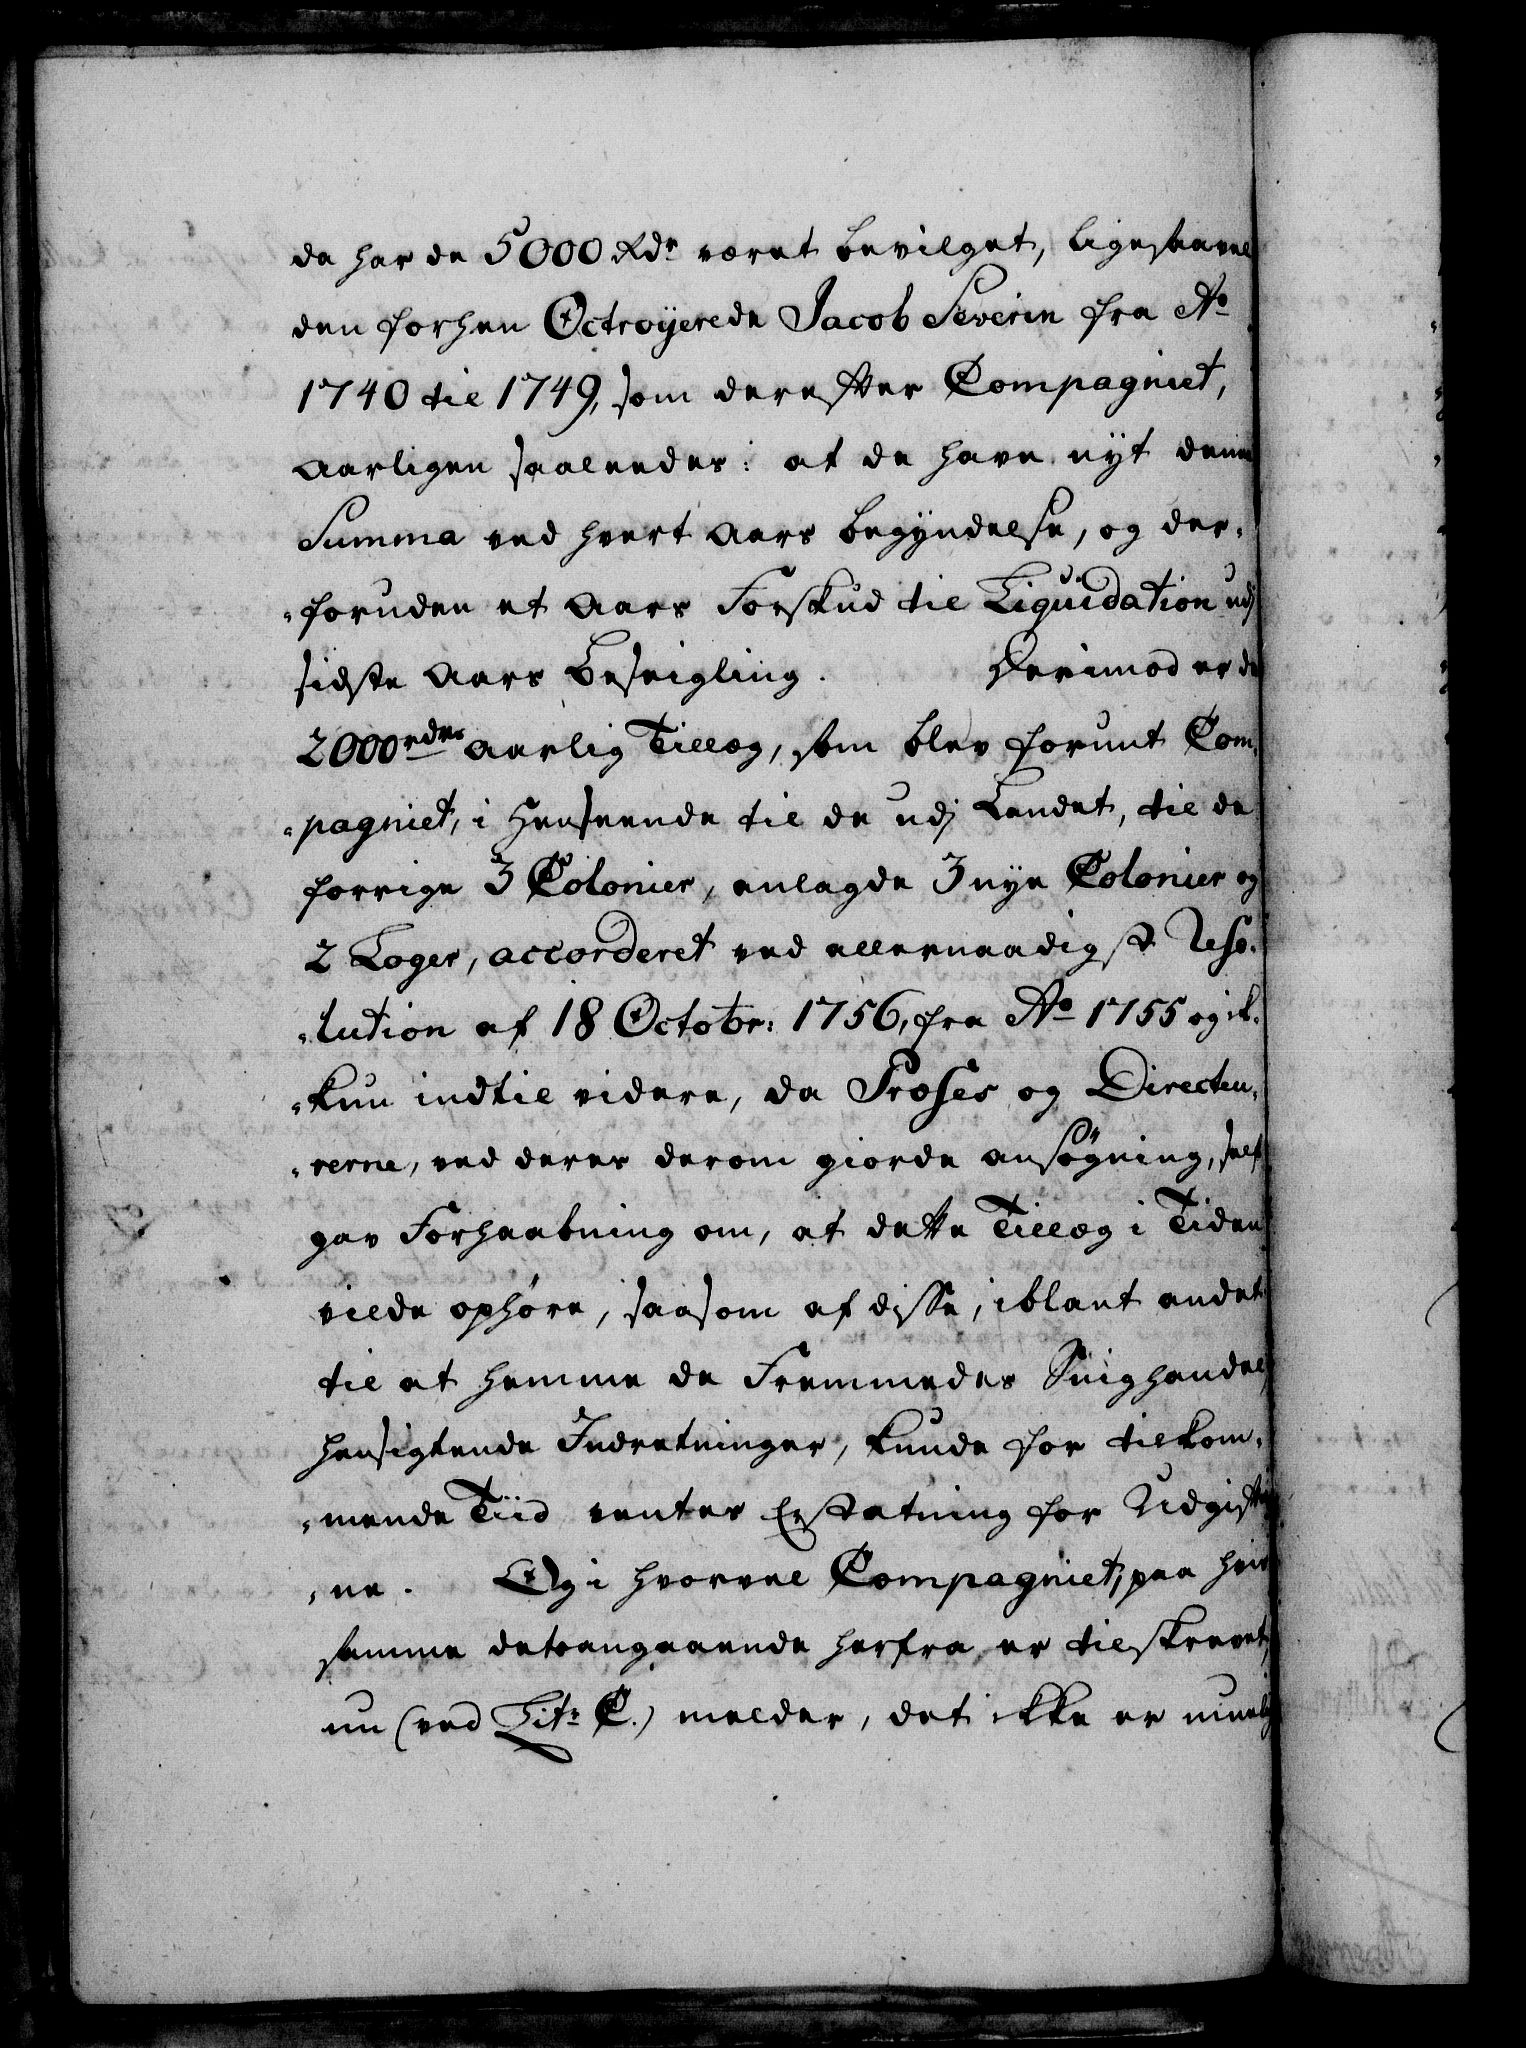 da har de 5000 Rdr været bevilget, ligesaavel
den forhen Octroÿerede Jacob Severin fra Ao
1740 til 1749, som derefter Compagniet,
aarligen saaleedes: at de have nÿt denne
Summa ved hvert Aars begÿndelse, og der-
-foruden et Aars Forskud til Liquidation udj
sidste Aars Beseigling. Derimod er de
2000 rdrs aarlig Tillæg, som blev forunt Com-
-pagniet, i Henseende til de udj Landet, til de
forrige 3 Colonier, anlagde 3 nye Colonier og
2 Loger, accorderet ved allernaadigst Reso-
-lution af 18 Octobr: 1756, fra Ao 1755 og ik-
-kun indtil videre, da Præses og Directeu-
-rerne, ved deres derom giorde ansøgning, self
gav Forhaabning om, at dette Tillæg i Tiden
vilde ophøre, saasom af disse, iblant andet
til at hemme de Fremmedes Snighandel,
hensigtende Indretninger, kunde for tilkom-
-mende Tiid ventes Erstatning for Udgifter-
-ne. Og i hvorvel Compagniet, paa hvis
samme detoangaaende herfra er tilskrevet,
nu (ved Litr C.) melder, det ikke er muelig